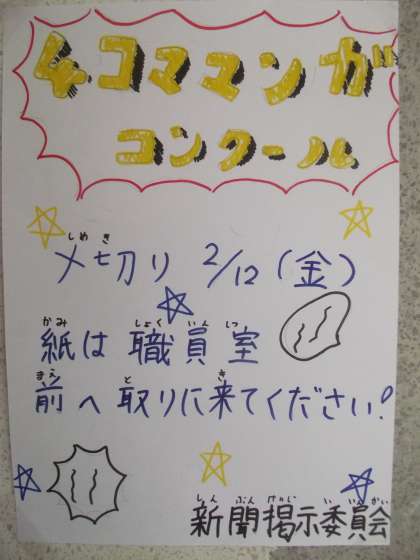 4コママンガ
コンクール
〆切り 2/12(金)
しめ き
紙は 職員室
かみ しょく いん しつ
前へ取りに来てください!
まえ と き
新聞掲示委員会
しん ぶん けいじ い いんかい